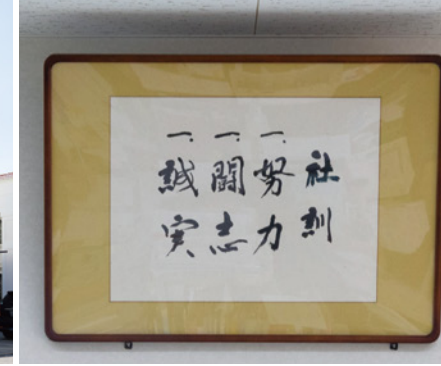 社訓
一.努力
一.闘志
一.誠実